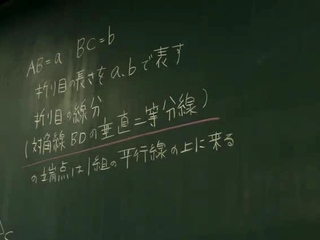 AB=a BC=b
折り目の長さをa.bで表す
折り目の線分
(対角線BDの垂直二等分線)
の端点は1組の平行線の上に来る